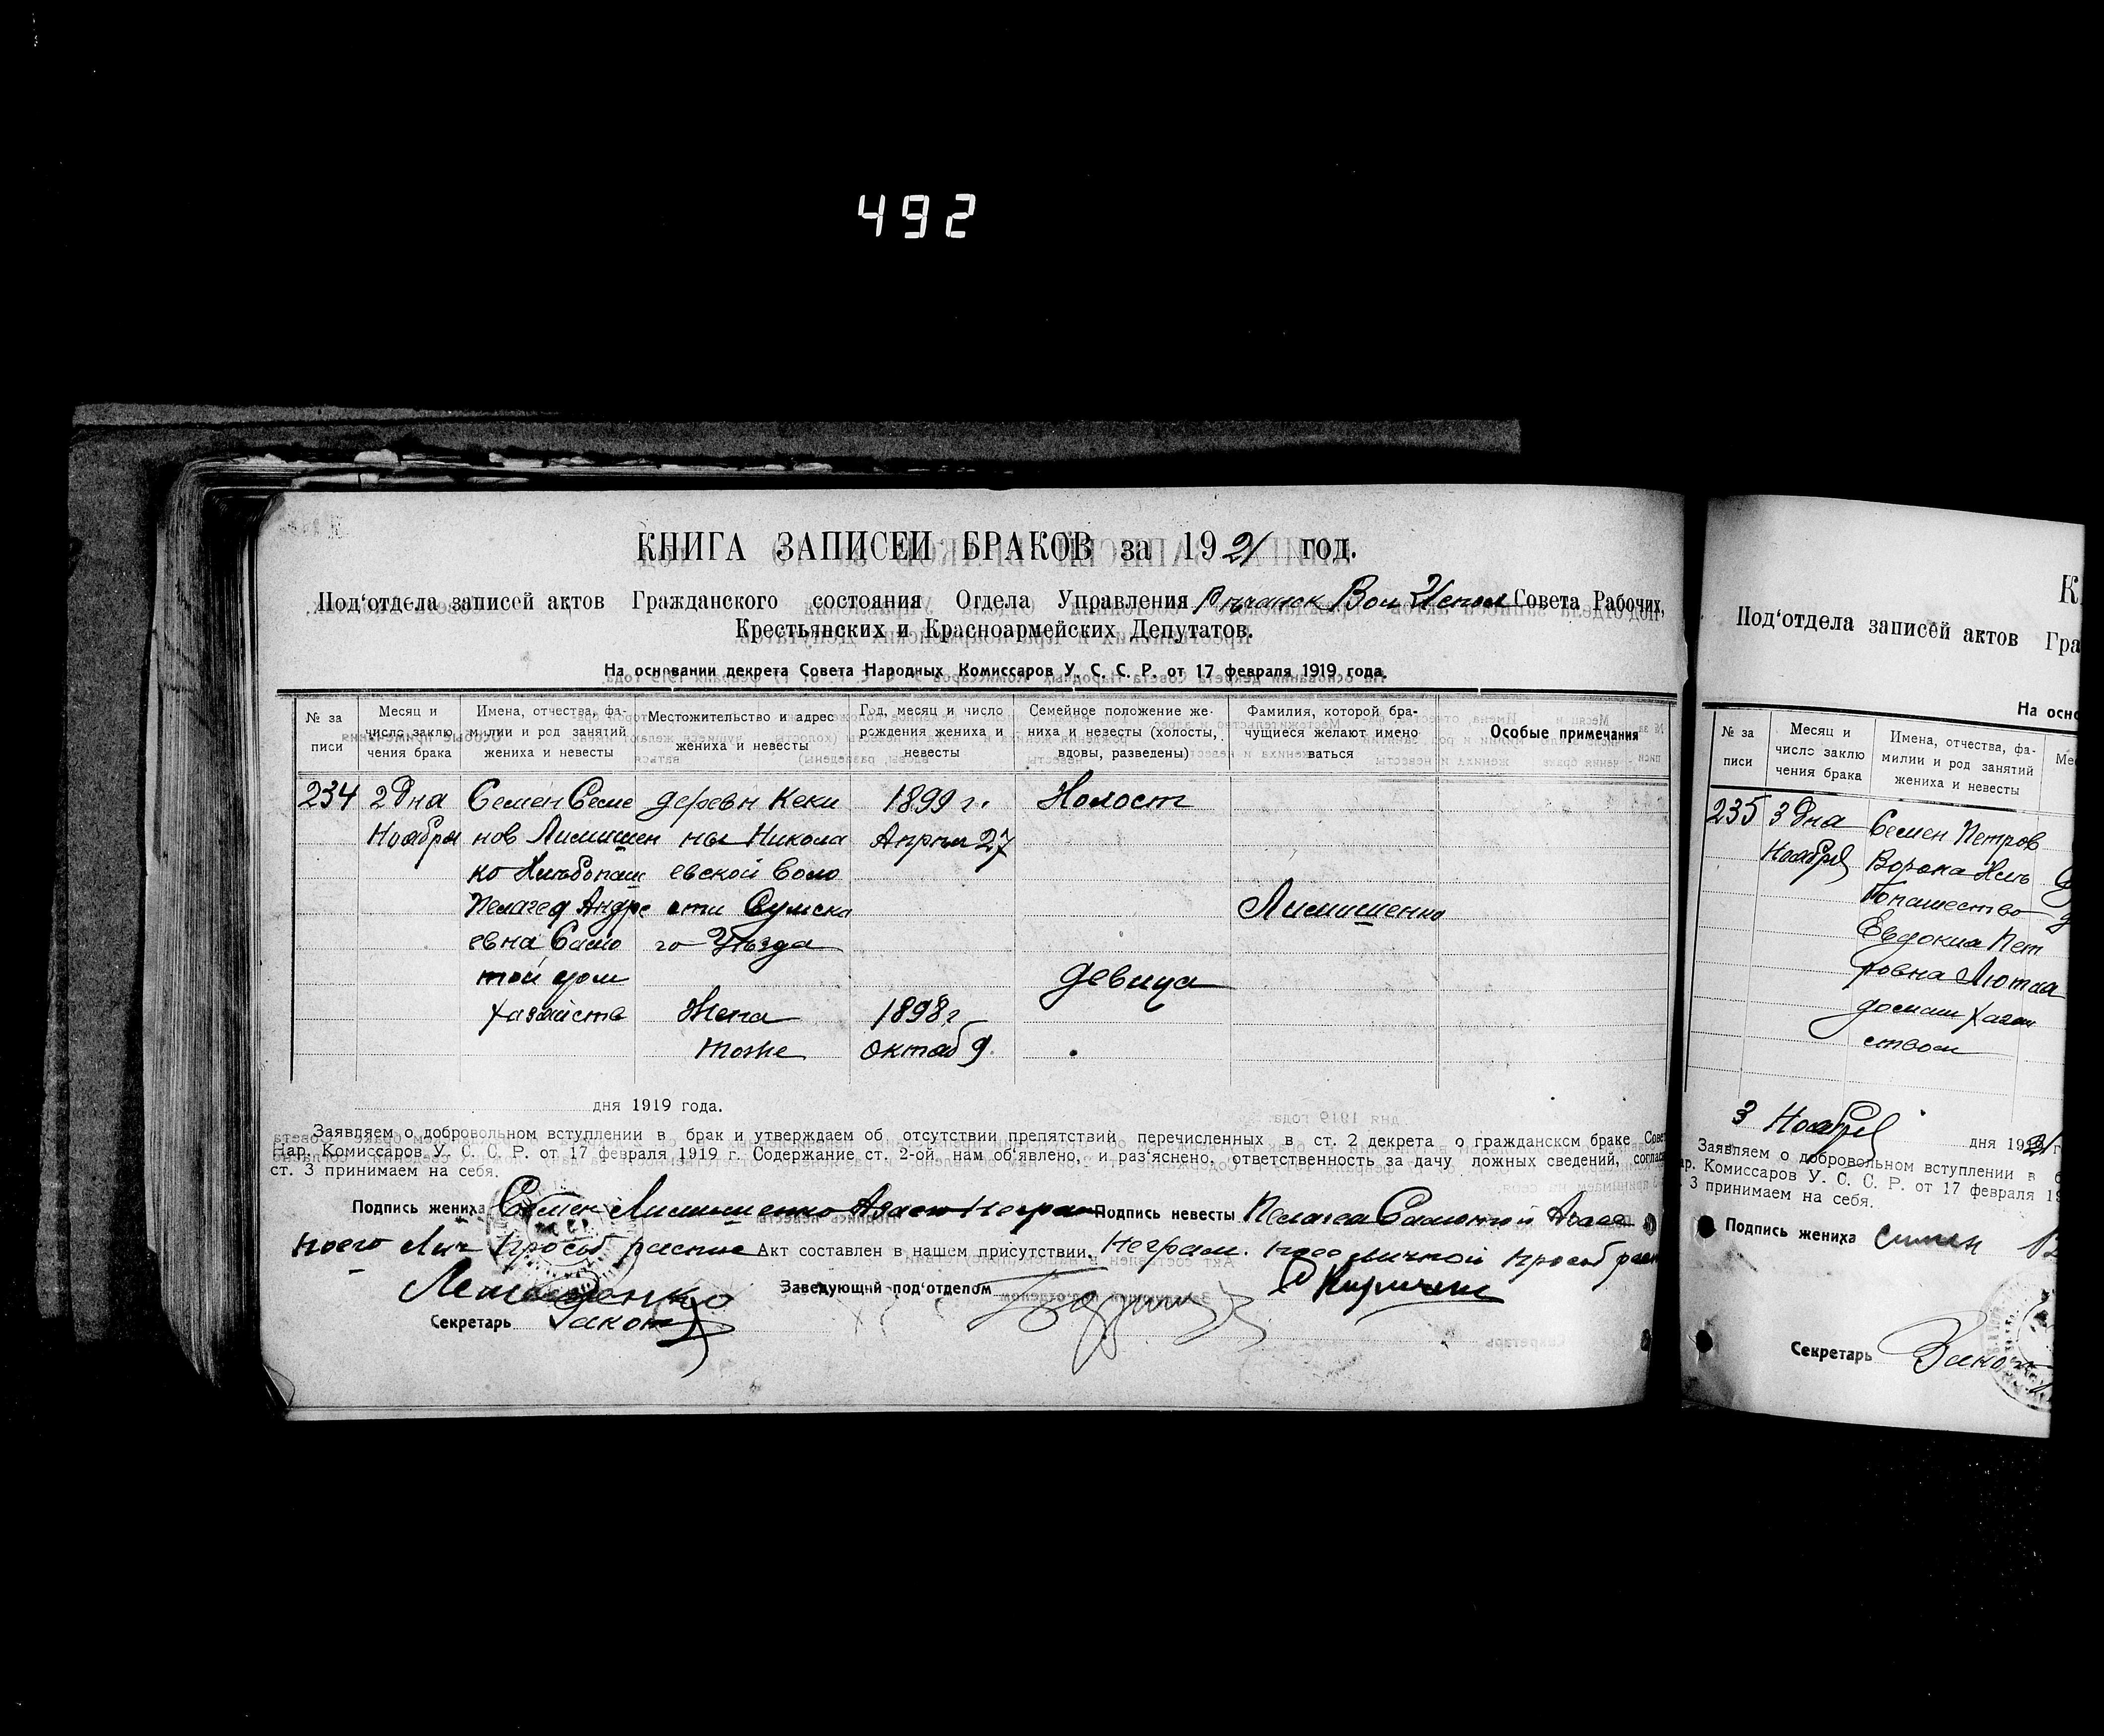 492
КНИГА ЗАПИСЕЙ БРАКОВ за 1921 год.
Под‘отдела записей актов Гражданского состояния Отдела Управления Вол Испол Совета Рабочих,
Крестьянских и Красноармейских Депутатов.
На основании декрета Совета Народных Комиссаров У. С. С. Р. от 17 февраля 1919 года.
№ за писи
Месяц и число заклю чения брака
Имена, отчества, фа- милии и род занятий жениха и невесты
Местожительство и адрес жениха и невесты
Год, месяц и число рождения жениха и невесты
Семейное положение же- ниха и невесты (холосты, вдовы, разведены)
Фамилия, которой бра- чущиеся желают имено ваться
Особые примечания
234 2 дня Семен Семе деревн Кеки 1899 г. Холост
Ноября нов Лимишен ны Никола Апреля 27
ко Хлебопаш евской Воло
Пелагея Андре сти Сумско Лимишенко
евна Само го Уезда
той дом девица
хазяйств Жена 1898 г
тоже октяб 9.
дня 1919 года.
Заявляем о добровольном вступлении в брак и утверждаем об отсутствии препятствий перечисленных в ст. 2 декрета о гражданском браке Совет
Нар. Комиссаров У. С. С. Р. от 17 февраля 1919 г. Содержание ст. 2-ой, нам об‘явлено, и раз‘яснено, ответственность за дачу ложных сведений, согласн
ст. 3 принимаем на себя.
Подпись жениха Семен Лимишенко Азаею Неграм Подпись невесты Пелагея
ноего Лич прособ распис Акт составлен в нашем присутствии. Неграм. личной прособ расп
Заведующий под‘отделом
Секретарь
К
Под‘отдела записей актов Гра
На осно
№ за писи
Месяц и число заклю чения брака
Имена, отчества, фа- милии и род занятий жениха и невесты
Ме
235 3 дня Семен Петров
Ноября Ворона Хлеб
Евдокия Пет
ровна Лютая
домаш хазяи
ством
3 Ноября дня 1921 г
Заявляем о добровольном вступлении в б
ар. Комиссаров У. С. С. Р. от 17 февраля 19
3 принимаем на себя.
Подпись жениха
Секретарь